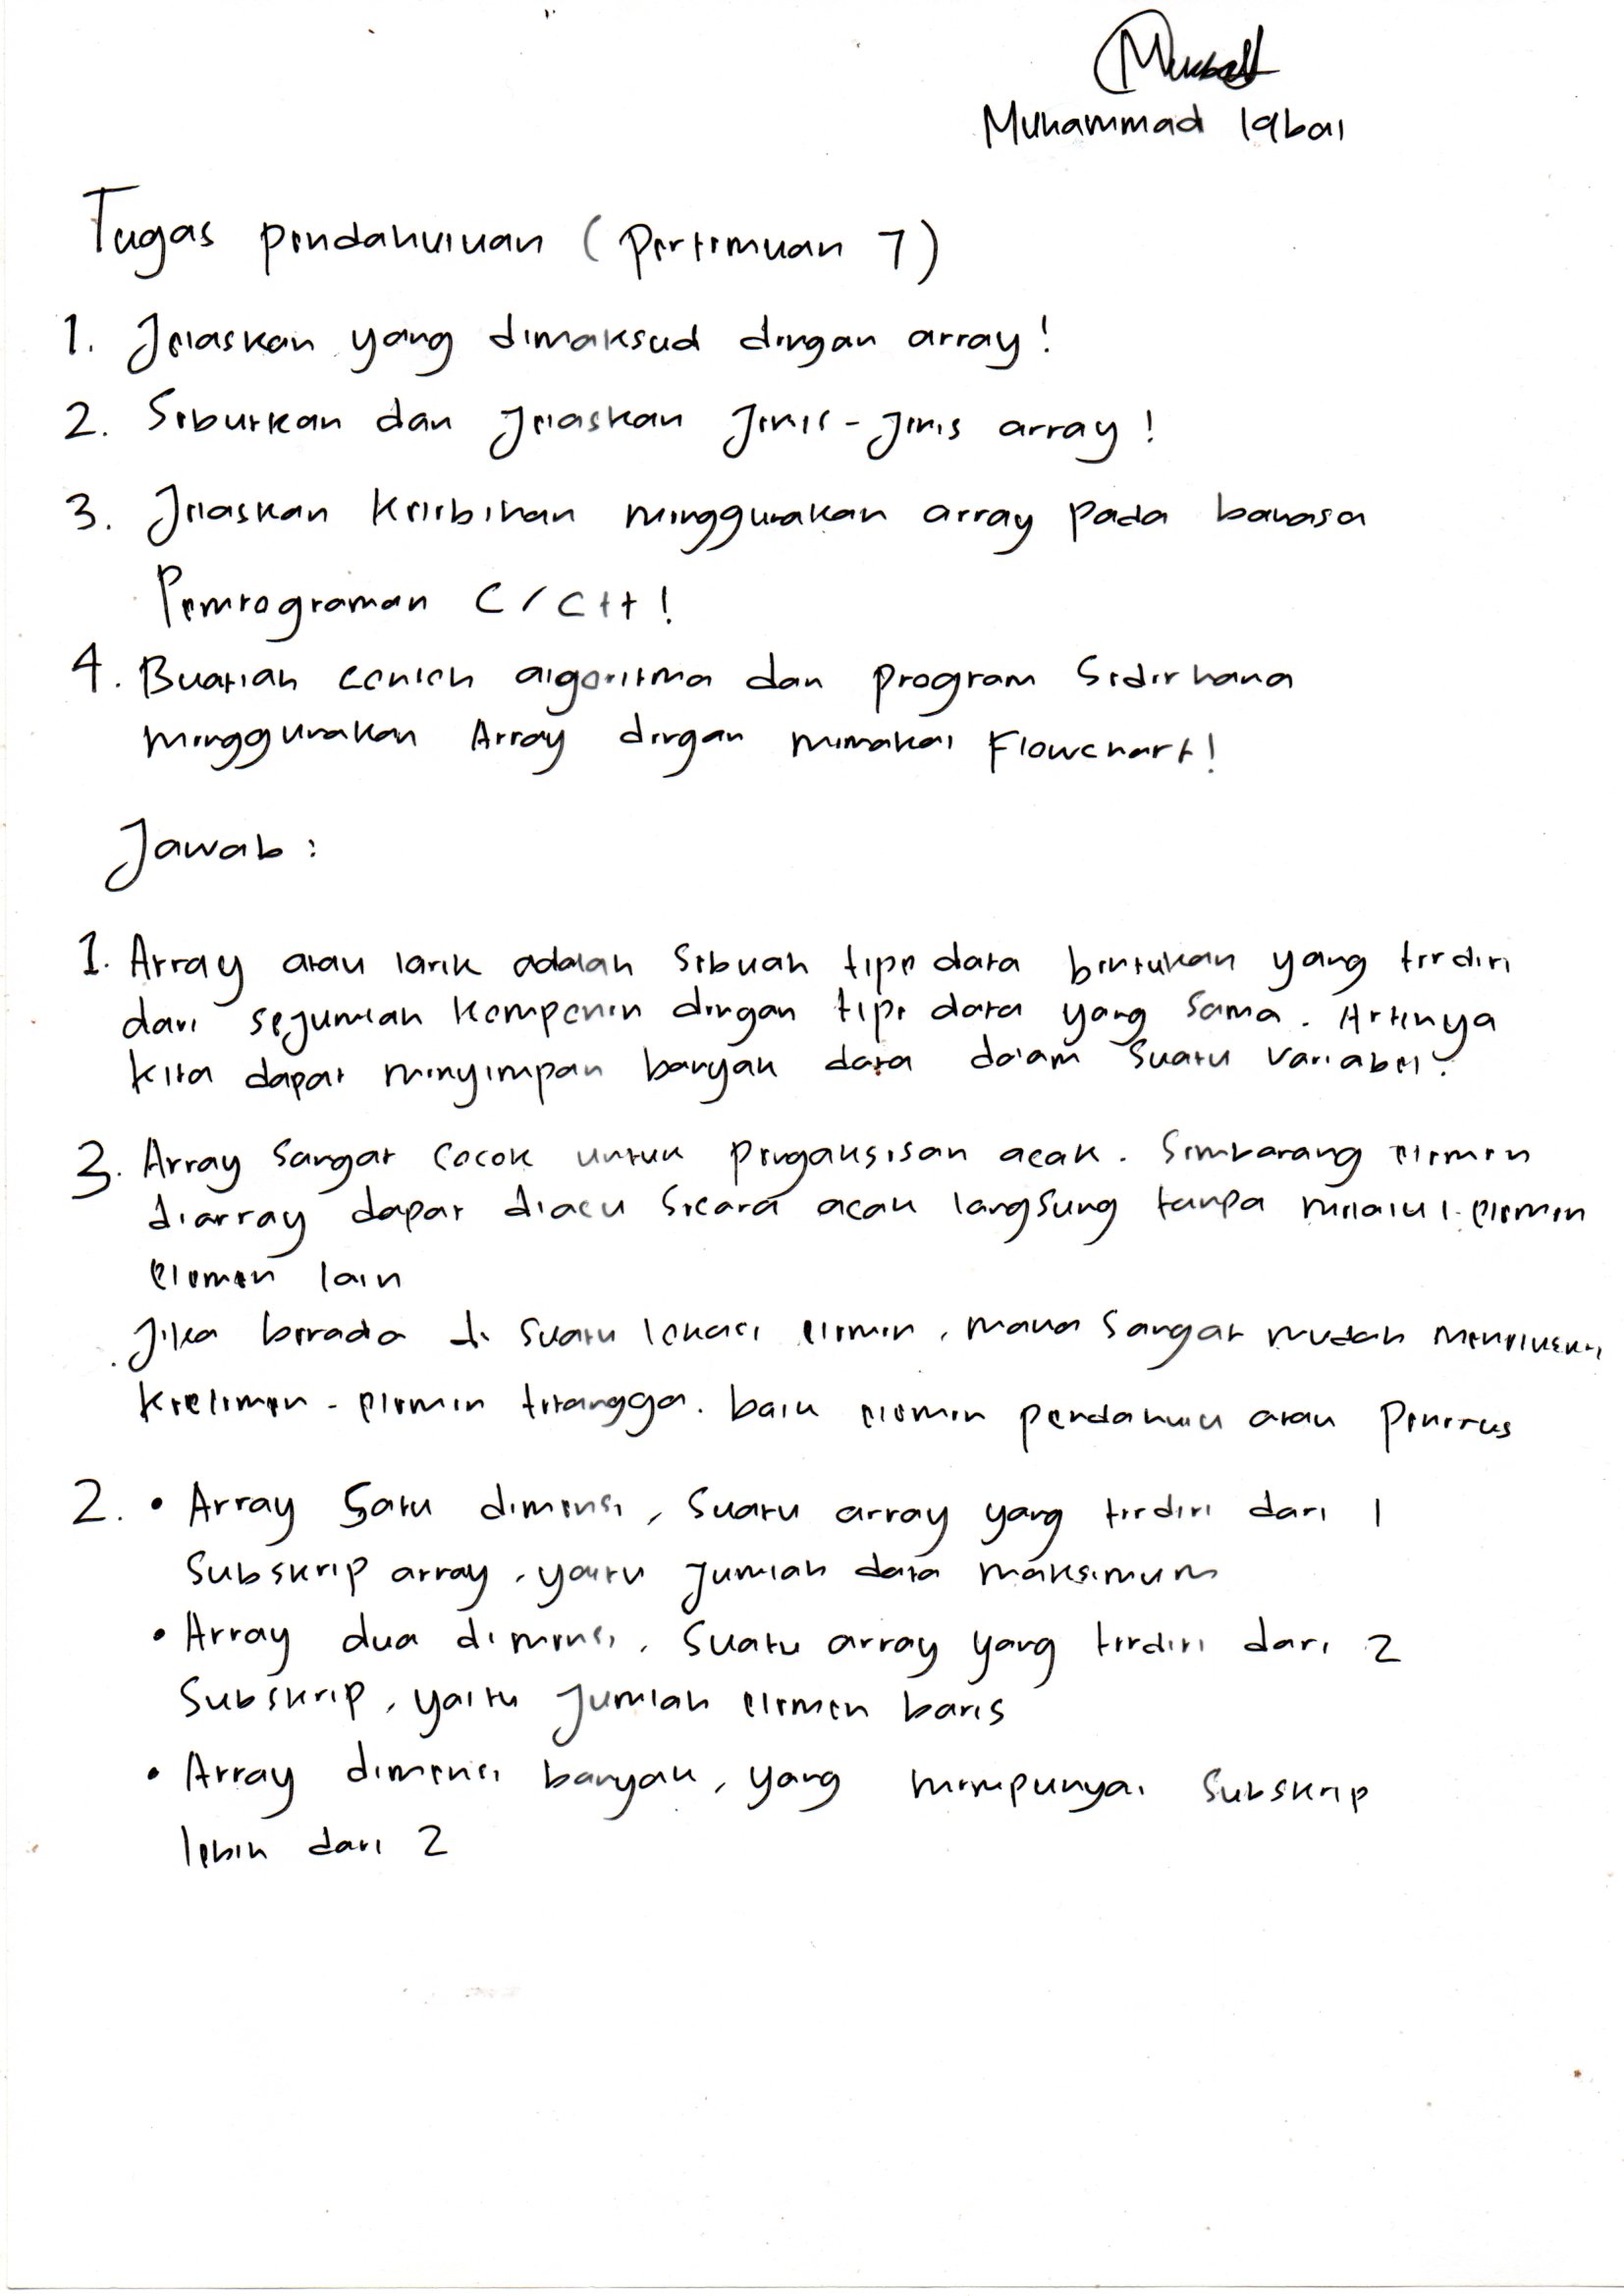 Muhammad Iqbal
Tugas pendahuluan (Pertemuan 7)
1. Jelaskan yang dimaksud dengan array!
2. Sebutkan dan Jelaskan Jenis-Jenis array!
3. Jelaskan Kelebihan menggunakan array pada bahasa
Pemrograman C/C++!
4. Buatlah contoh algoritma dan program Sederhana
menggunakan Array dengan memakai Flowchart!
Jawab:
1. Array atau larik adalah Sebuah tipe data bentukan yang terdiri
dari sejumlah Komponen dengan tipe data yang Sama. Artinya
kita dapat menyimpan banyak data dalam Suatu Variabel.
3. Array Sangat Cocok untuk pengaksesan acak. Sembarang elemen
diarray dapat diacu Secara acak langsung tanpa melalui elemen
elemen lain
Jika berada di Suatu lokasi elemen, maka Sangat mudah menelusuri
Keelemen-elemen tetangga. baik elemen pendahulu atau Penerus
2. • Array Satu dimensi, Suatu array yang terdiri dari 1
Subskrip array, yaitu Jumlah data maksimum
• Array dua dimensi, Suatu array yang terdiri dari 2
Subskrip, yaitu Jumlah elemen baris
• Array dimensi banyak, yang mempunyai Subskrip
lebih dari 2